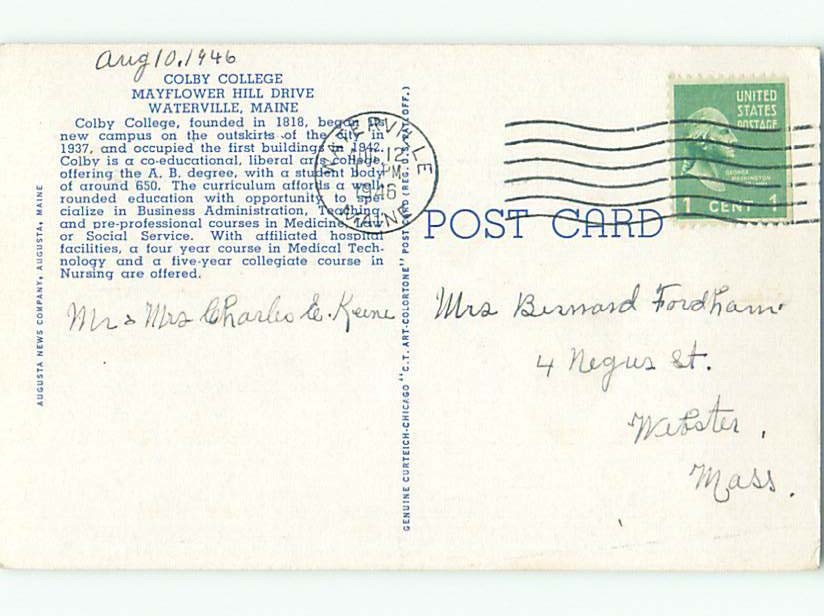 Aug 10, 1946
COLBY COLLEGE
MAYFLOWER HILL DRIVE
WATERVILLE, MAINE
Colby College, founded in 1818, began its
new campus on the outskirts of the city in
1937, and occupied the first buildings in 1942.
Colby is a co-educational, liberal arts college,
offering the A. B. degree, with a student body
of around 650. The curriculum affords a well
rounded education with opportunity to spe-
cialize in Business Administration, Teaching,
and pre-professional courses in Medicine, Law
or Social Service. With affiliated hospital
facilities, a four year course in Medical Tech-
nology and a five-year collegiate course in
Nursing are offered.
Mr & Mrs Charles E. Keene
AUGUSTA NEWS COMPANY, AUGUSTA, MAINE
GENUINE CURTEICH-CHICAGO "C.T. ART-COLORTONE" POST CARD (REG. U.S. PAT. OFF.)
WATERVILLE
12
PM
1946
MAINE
POST CARD
UNITED
STATES
POSTAGE
GEORGE
WASHINGTON
1 CENT 1
Mrs Bernard Fordham
4 Negus St.
Webster,
Mass.